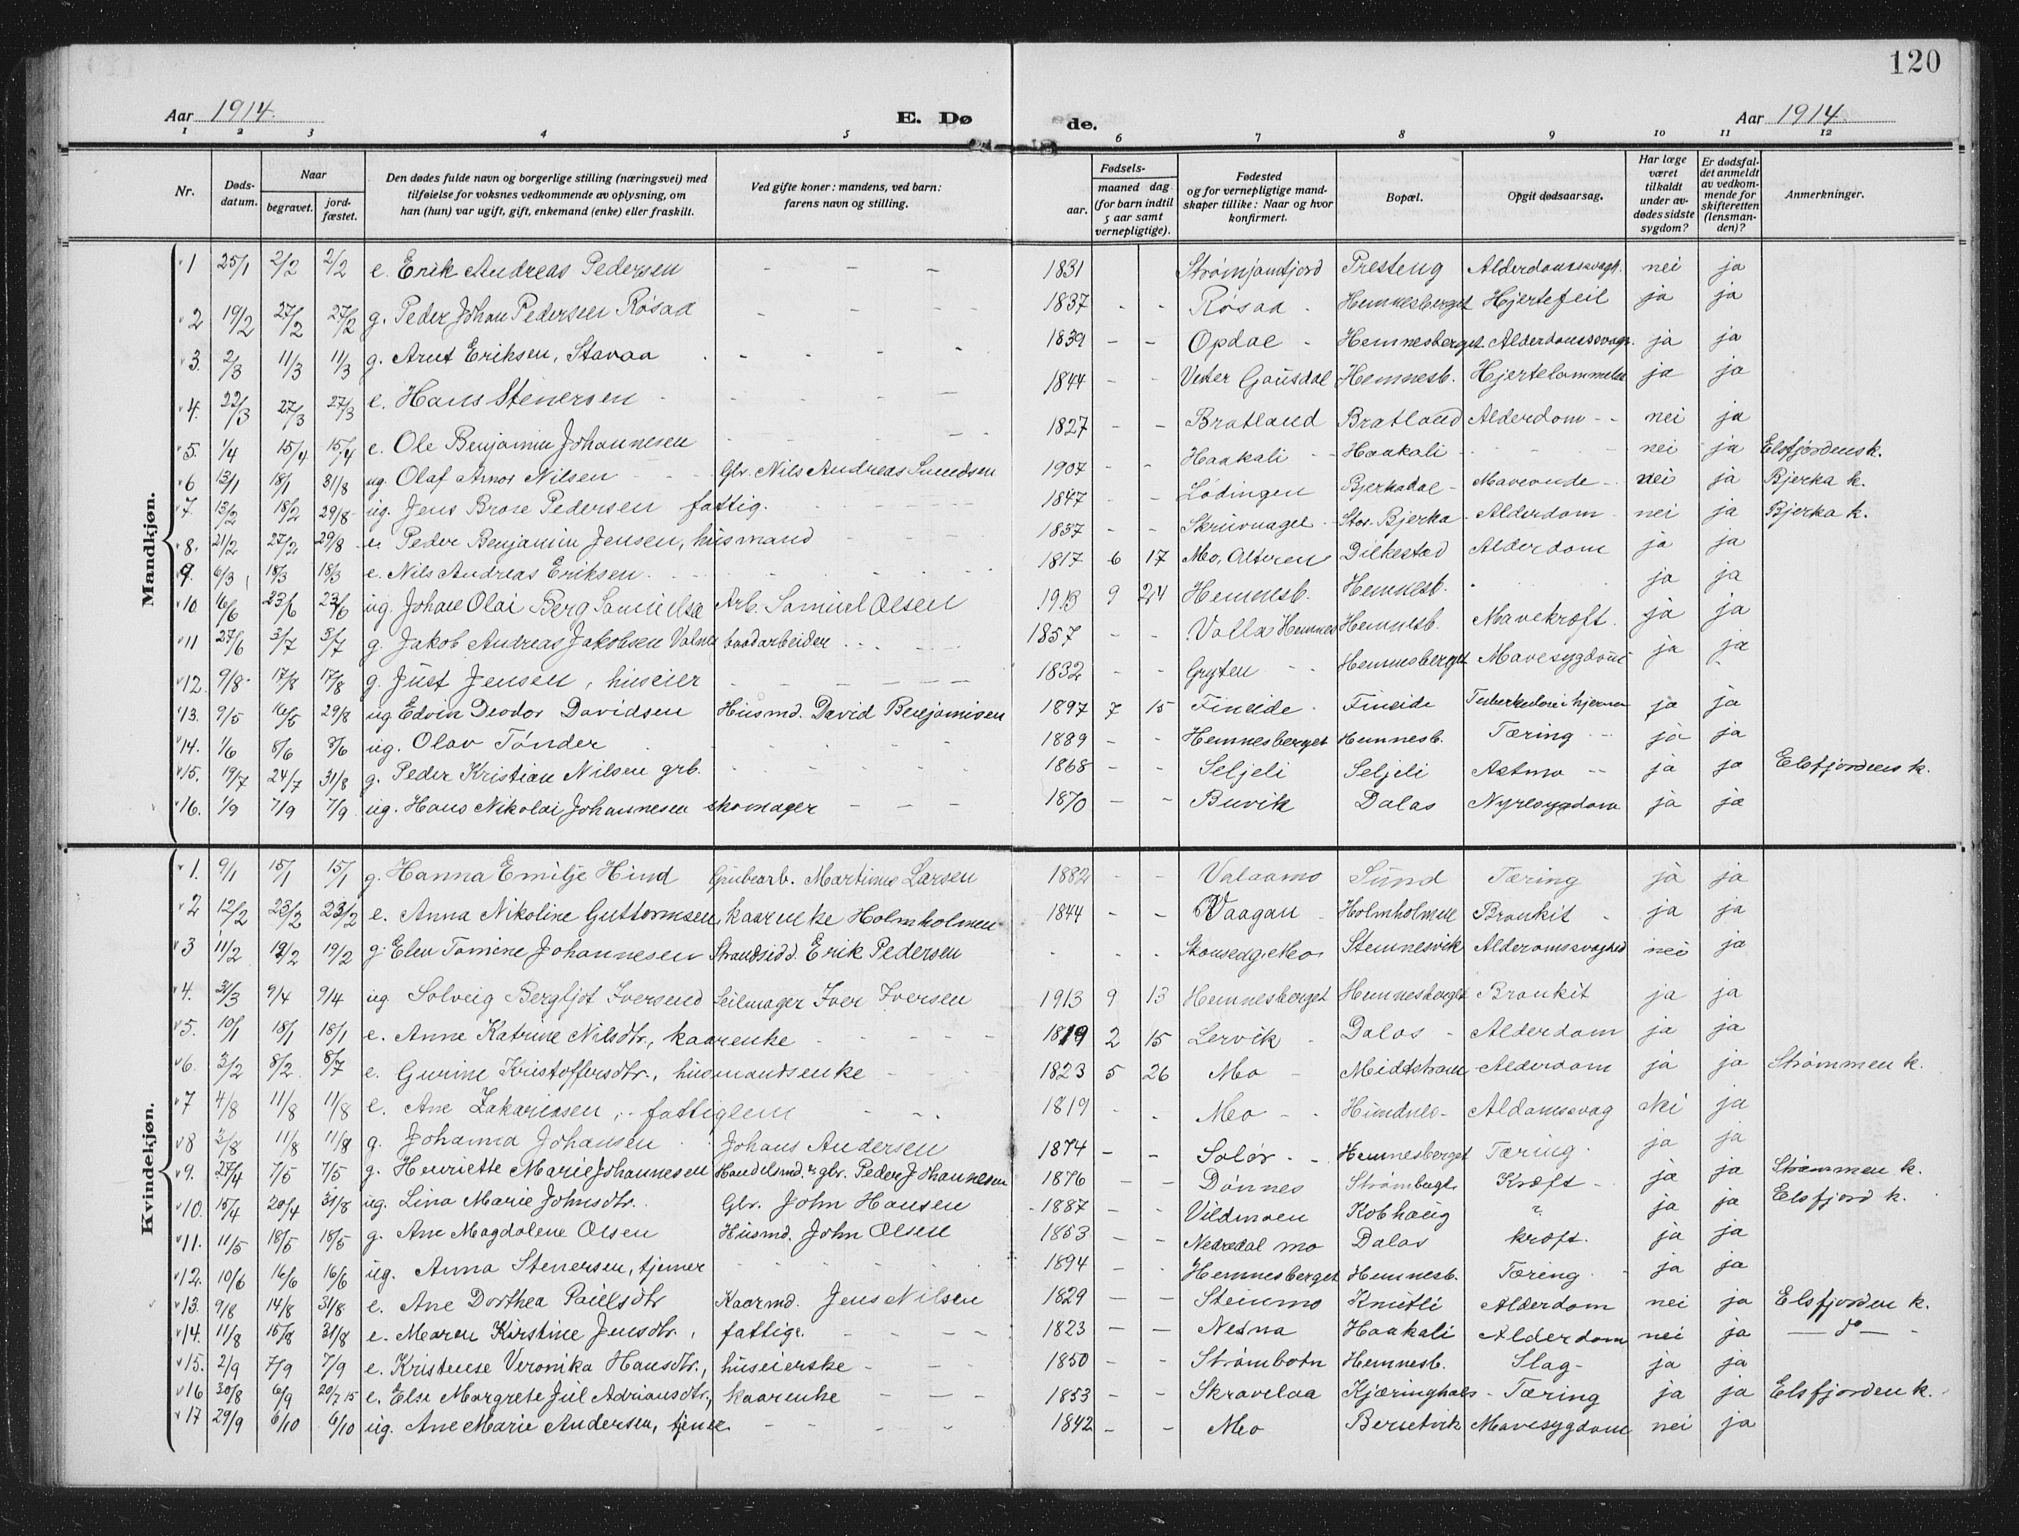 120
Aar 1914. E. Dø de. Aar 1914.
1 2 3 4 5 6 7 8 9 10 11 12
Nr. Døds-datum. Naar begravet. jord-fæstet. Den dødes fulde navn og borgerlige stilling (næringsvei) med tilføielse for voksnes vedkommende av oplysning, om han (hun) var ugift, gift, enkemand (enke) eller fraskilt. Ved gifte koner: mandens, ved barn: farens navn og stilling. Fødsels- aar. maaned dag (for barn indtil 5 aar samt vernepligtige). Fødested og for vernepligtige mandskaper tillike: Naar og hvor konfirmert. Bopæl. Opgit dødsaarsag. Har læge været tilkaldt under avdødes sidste sygdom? Er dødsfaldet anmeldt av vedkommende for skifteretten (lensmanden)? Anmerkninger.
Mandkjøn.
1 25/1 2/2 2/2 e. Erik Andreas Pedersen - - - 1831 Strømjamtfjord Presteng Alderdomssvagh. nei ja
2 19/2 27/2 27/2 g. Peder Johan Pedersen Røsaa - - - 1837 - - Røsaa Hemnesberget Hjertefeil ja ja
3. 2/3 11/3 11/3 g. Arnt Eriksen, Stavaa - - - 1839 - - Opdal Hemnesberget Alderdomssvagh. ja ja
4. 22/3 27/3 27/3 e. Hans Stenersen 1844 - - Vester Gausdal Hemnesb. Hjertelammelse ja ja
5. 1/4 15/4 15/4 e. Ole Benjamin Johannesen 1827 - - Bratland Bratland Alderdom nei ja
6 13/1 18/1 31/8 ug. Olaf Arnor Nilsen Gbr. Nils Andreas Svendsen 1907 - - Haakali Haakali nei ja Elsfjordens k.
7. 13/2 18/2 29/8 ug. Jens Brose Pedersen fattig. 1847 - - Lødingen Bjerkadal Maveonde nei ja Bjerka k.
8. 21/2 27/2 29/8 e. Peder Benjamin Jensen, husmand 1837 Stor-Bjerka Alderdom nei ja Bjerka k.
9. 6/3 18/3 18/3 e. Nils Andreas Eriksen. 1817 6 17 Mo, Alteren Dilkestad Alderdom ja ja
10 16/6 23/6 23/6 ug. Johan Olai Berg Samuelse Arb. Samuel Olsen 1913 9 24 Hemnesb. Hemnesb. ja ja
11 27/6 3/7 3/7 g. Jakob Andreas Jakobsen Valme baadarbeider 1857 - - Valla Hemnes Hemnesb. Mavekræft. ja ja
12 9/8 17/8 17/8 g. Just Jensen, huseier 1832 - - Gryten Hemnesberget Mavesygdom ja ja
13. 9/5 16/5 29/8 ug Edvin Deodor Davidsen Husmd. David Benjaminsen 1897 7 15 Fineide Fineide Tuberkulose i hjernen ja ja
14. 1/6 8/6 8/6 ug. Olav Tønder 1889 - - Hemnesberget Hemnesb. Tæring ja ja
15. 19/7 24/7 31/8 g. Peder Kristian Nilsen grb. 1868 Seljeli Seljeli Astma ja ja Elsfjordens k.
16. 1/9 7/9 7/9 ug. Hans Nikolai Johannesen skomager 1870 - - Buvik Dalas Nyresygdom ja ja
Kvindekjøn.
1. 9/1 15/1 15/1 g. Hanna Emilje Hind Grubearb. Martinus Larsen 1882 - - Valaamo Sund Tæring ja ja
2 12/2 23/2 23/2 e. Anna Nikoline Guttormsen, kaarenke Holmholmen 1844 - - Vaagan Holmholmen Bronkit ja ja
3 11/2 19/2 19/2 g. Elen Tomine Johannesen Strandsidd. Erik Pedersen Mo Stennesvik Alderomssvaghed nei ja
4. 31/3 9/4 9/4 ug. Solveig Bergljot Iversend Seilmager Iver Iversen 1913 9 13 Hemnesberget Hemnesberget Bronkit ja ja
5. 10/1 18/1 18/1 e. Anne Katrine Nilsdtr., kaarenke 1819 2 15 Lervik Dalos Alderdom ja ja
6. 3/2 8/2 8/7 e. Gurine Kristoffersdtr., husmandsenke 1823 5 26 Mo Midtstrøm Alderdom ja ja Strømmen k.
7 4/8 11/8 11/8 e. Ane Zakariassen, fattiglem 1819 Mo Hundnes Aldomssvag Nei ja
8 3/8 11/8 11/8 g. Johanna Johansen Johans Andersen 1874 - - Solør Hemnesberget Tæring ja ja
9. 27/4 7/5 7/5 g. Henriette Marie Johannesen Handelsmd. & gbr. Peder Johannesen 1876 - - Dønnes Strømbugt Kræft ja ja Strømmen k.
10. 15/4 20/4 31/8 ug. Lina Marie Johnsdtr. Gbr. John Hansen 1887 - - Vildmoen Kobhaug ? ja ja Elsfjord k.
11. 11/5 18/5 18/5 g. Ane Magdalene Olsen Husmd. John Olsen 1853 - - Nedredal mo Dalas kræft. ja ja
12. 10/6 16/6 16/6 ug. Anna Stenersen, tjener 1894 - - Hemnesberget Hemnesb. Tæring ja ja
13. 9/8 14/8 31/8 e. Ane Dorthea Paulsdtr Kaarmd. Jens Nilsen 1829 - - Steinmo Knutli Alderdom nei ja Elsfjorden k.
14. 11/8 15/8 31/8 e. Maren Kirstine Jensdtr., fattige. 1823 - - Nesna Haakali Alderdom nei ja — do —
15. 2/9 7/9 7/9 e. Kristense Veronika Hansdtr., huseierske 1850 - - Strømbotn Hemnesb. Slag ja ja
16 30/8 6/9 20/7 15 e. Else Margrete Jul Adriansdtr., kaarenke 1853 - - Skravelaa Kjæringhals Tæring ja ja Elsfjorden k.
17 29/9 6/10 6/10 ug. Ane Marie Andersen, tjener 1842 - - Mo Bersetvik Mavesygdom nei ja